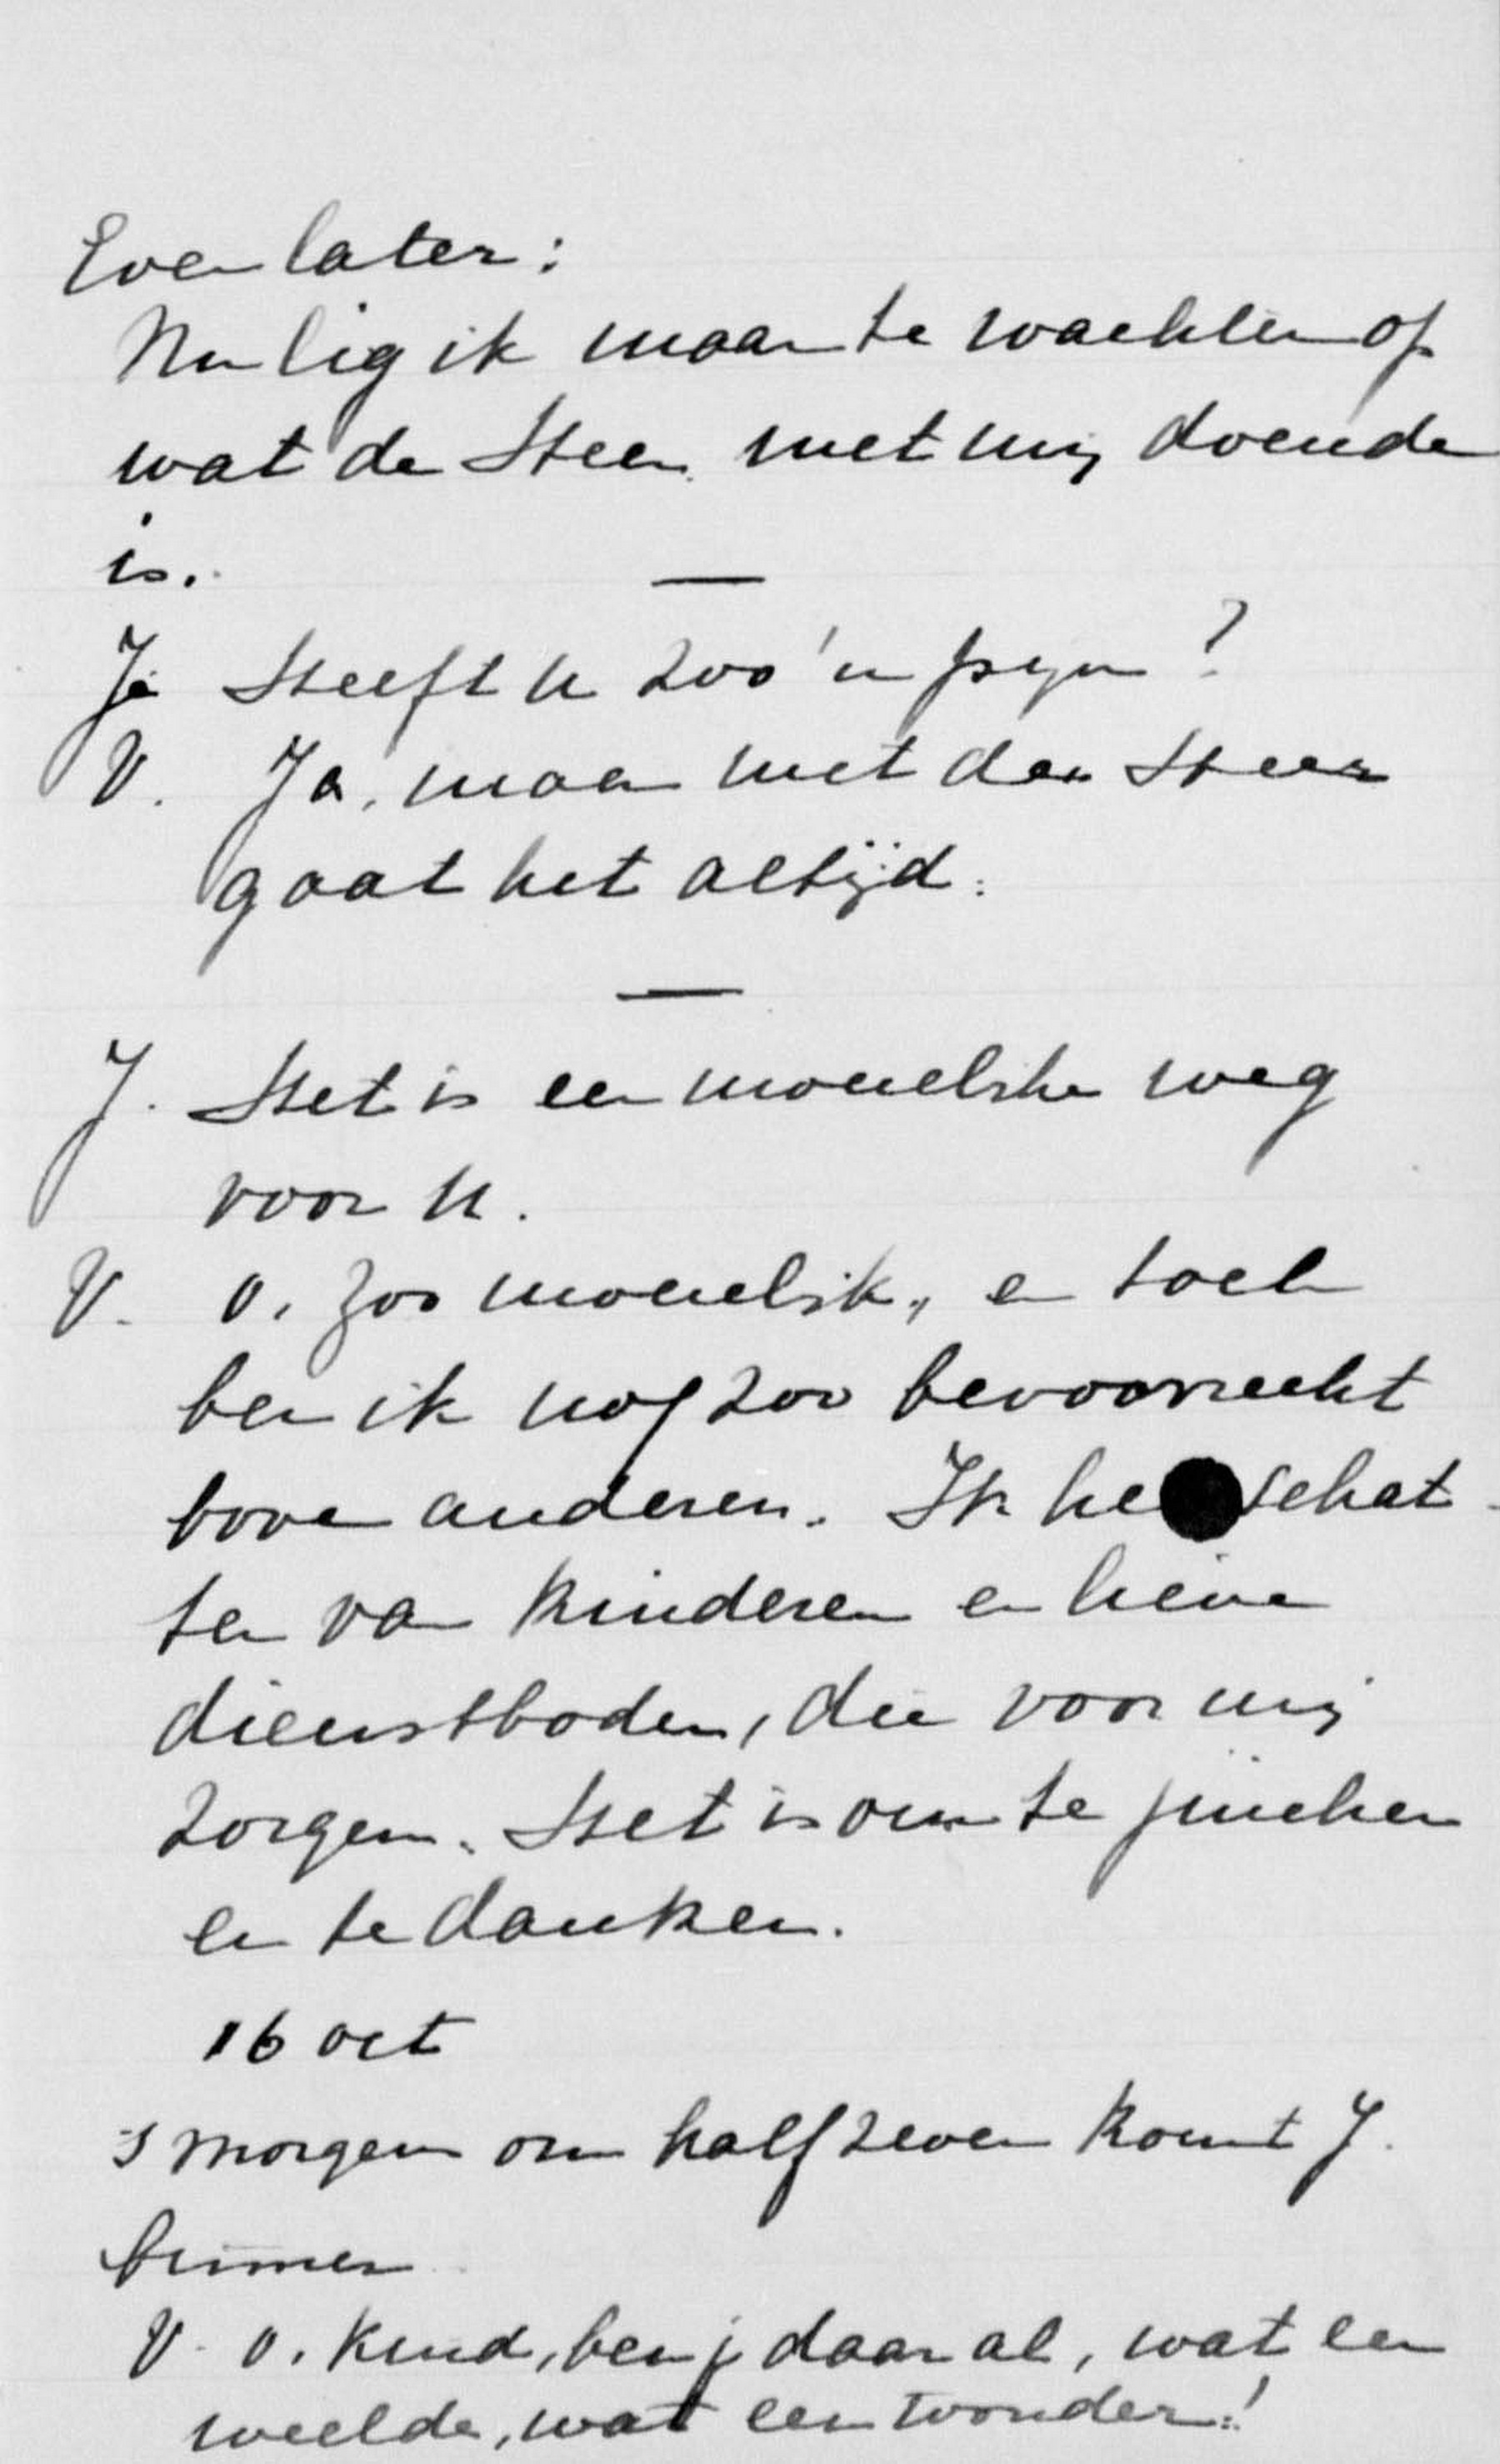 Even later:
Nu lig ik maar te wachten op
wat de Heer met mij doende
is.
J. Heeft u zoo'n pijn?
V. Ja, maar met den Heer
gaat het altijd.
J. Het is een moeielijke weg
voor u.
V. O, zoo moeielijk, en toch
ben ik nog zoo bevoorrecht
boven anderen. Ik he schat
ten van kinderen en lieve
dienstboden, die voor mij
zorgen. Het is om te juichen
en te danken.
16 oct
's morgens om half zeven komt J.
binnen
V. O, kind, ben je daar al, wat een
weelde, wat een wonder!